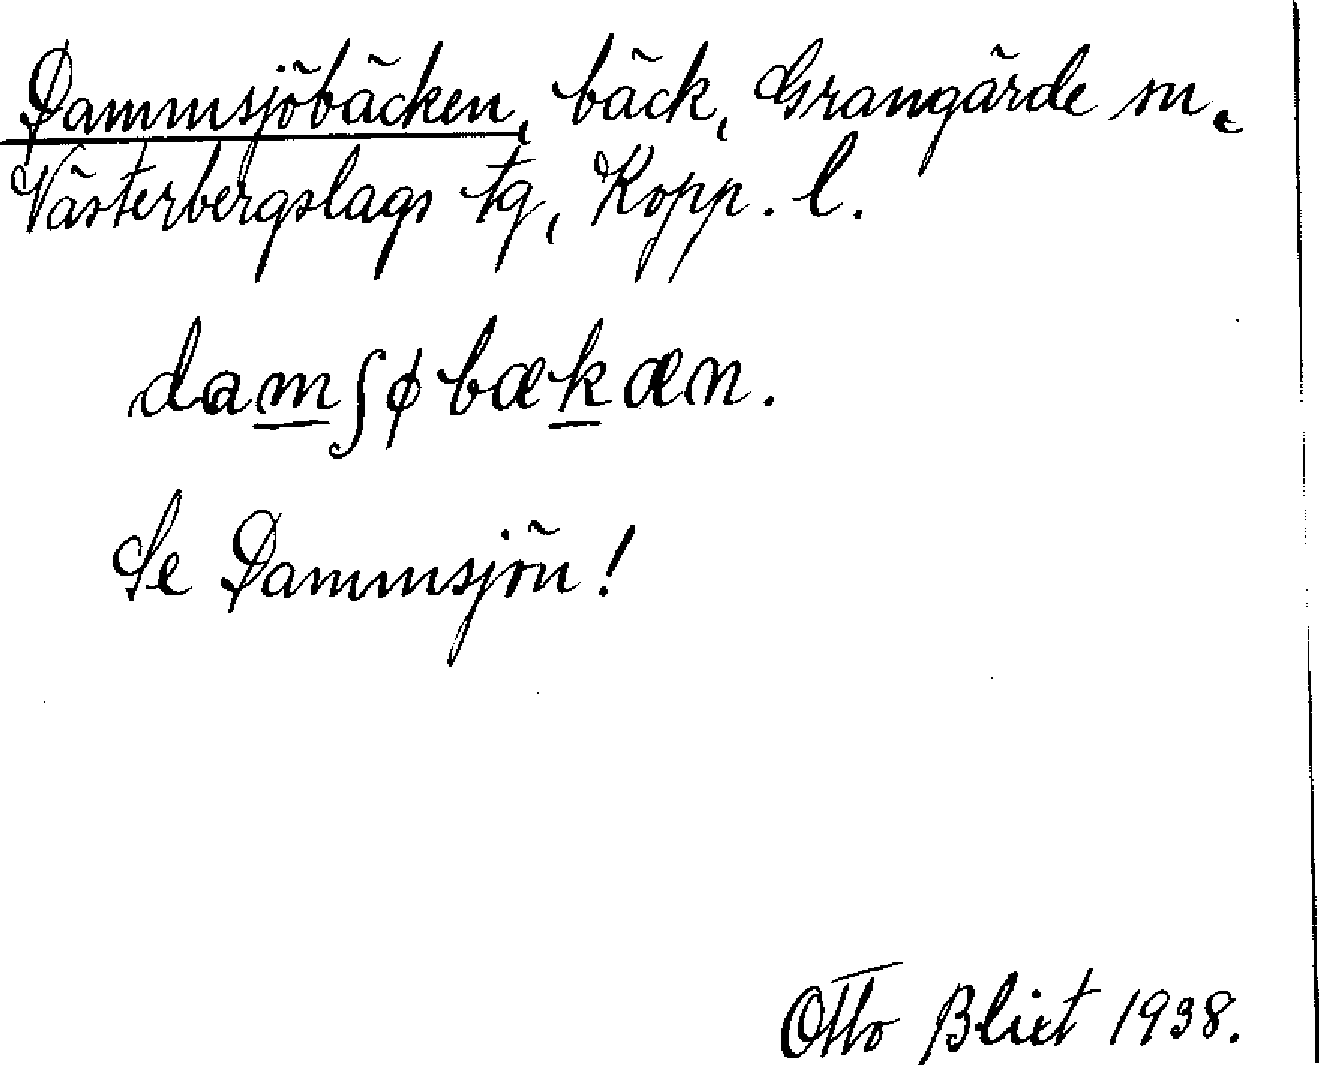 Dammsjöbäcken, bäck, Grangärde sn,
Västerbergslags tg, Kopp. l.
damʃøbækæn.
Se Dammsjön!
Otto Blixt 1938.